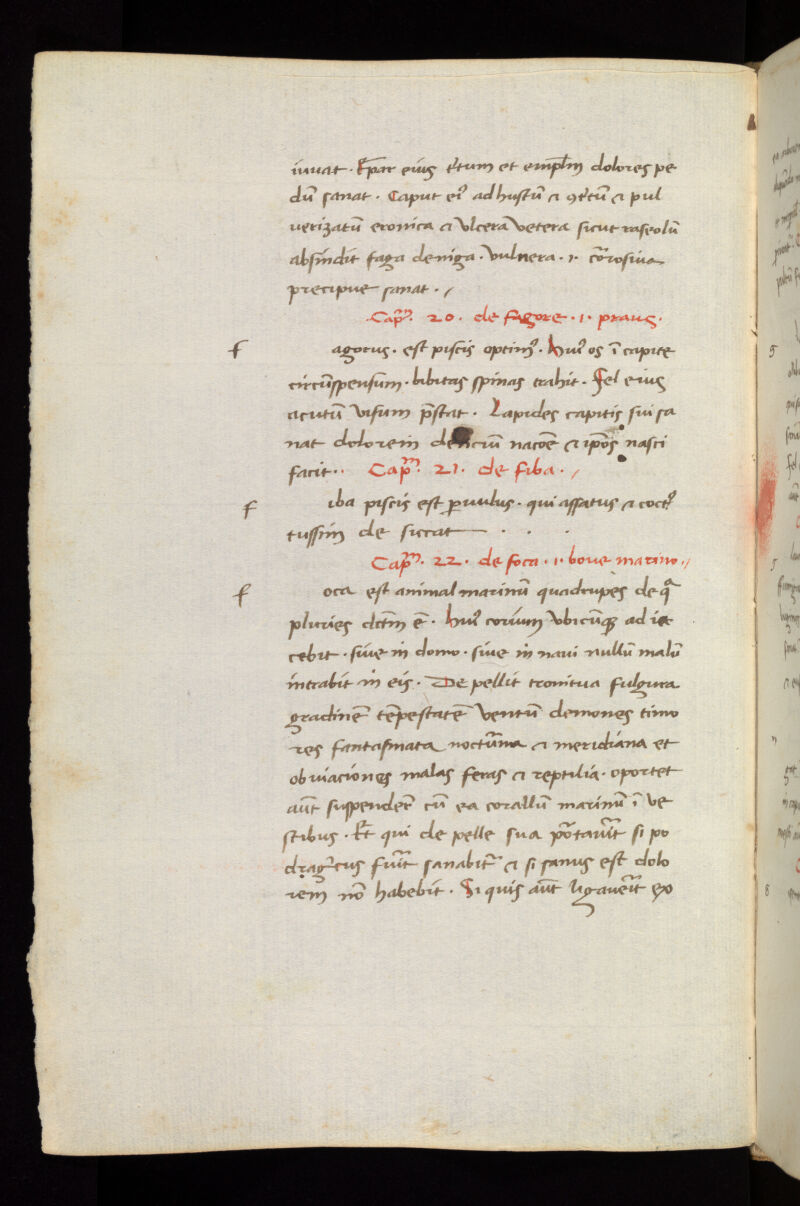 iuuat · Epar eius tritum et emplm̄ dolores pe
dū sanat · Caput ei⁹ ad hustū et ꝯtritū et pul
uerizatū cronica et vlcera vetera sicut raseolū
absindit faga deniga · vulnera · i · corrosiua
precipue sanat · /
Cap̄m · 20 · de fagore · i · praus ·
f agorus · est piscis optim⁹ · hui⁹ os ī capite
circūspensum · bibitas spinas trahit · Fel eius
acutū visum p̄stat · Lapides capitis sui sa
nat dolorem dencium nacōe et ip̄os nasci
facit · · Cap̄m · 21 · de fiba · /
f iba piscis est paruulus · qui assatus et coct⁹
tussim de siccat · · ·
Cap̄m · 22 · de foca · i · boue marino · //
f oca est animal marinū quadrupes de qua
pluries dictm̄ ē · hui⁹ corium vbicūqꝫ ad ia
cebit · siue in domo · siue in naui nullū malū
intrabit in eis · De pellit tronitua fulgura
grandinē tēpestatē ventū demones timo
res fantasmata nocturna et meridiana et
obuiaciones malas feras et reptilia · oportet
aūt suspendere cū ea corallū marinū ī ve
stibus · Et qui de pelle sua portauerit si po
dragricus fuerit sanabitur et si sanus est dolo
rem nō habebit · Si quis aūt ligauerit ex